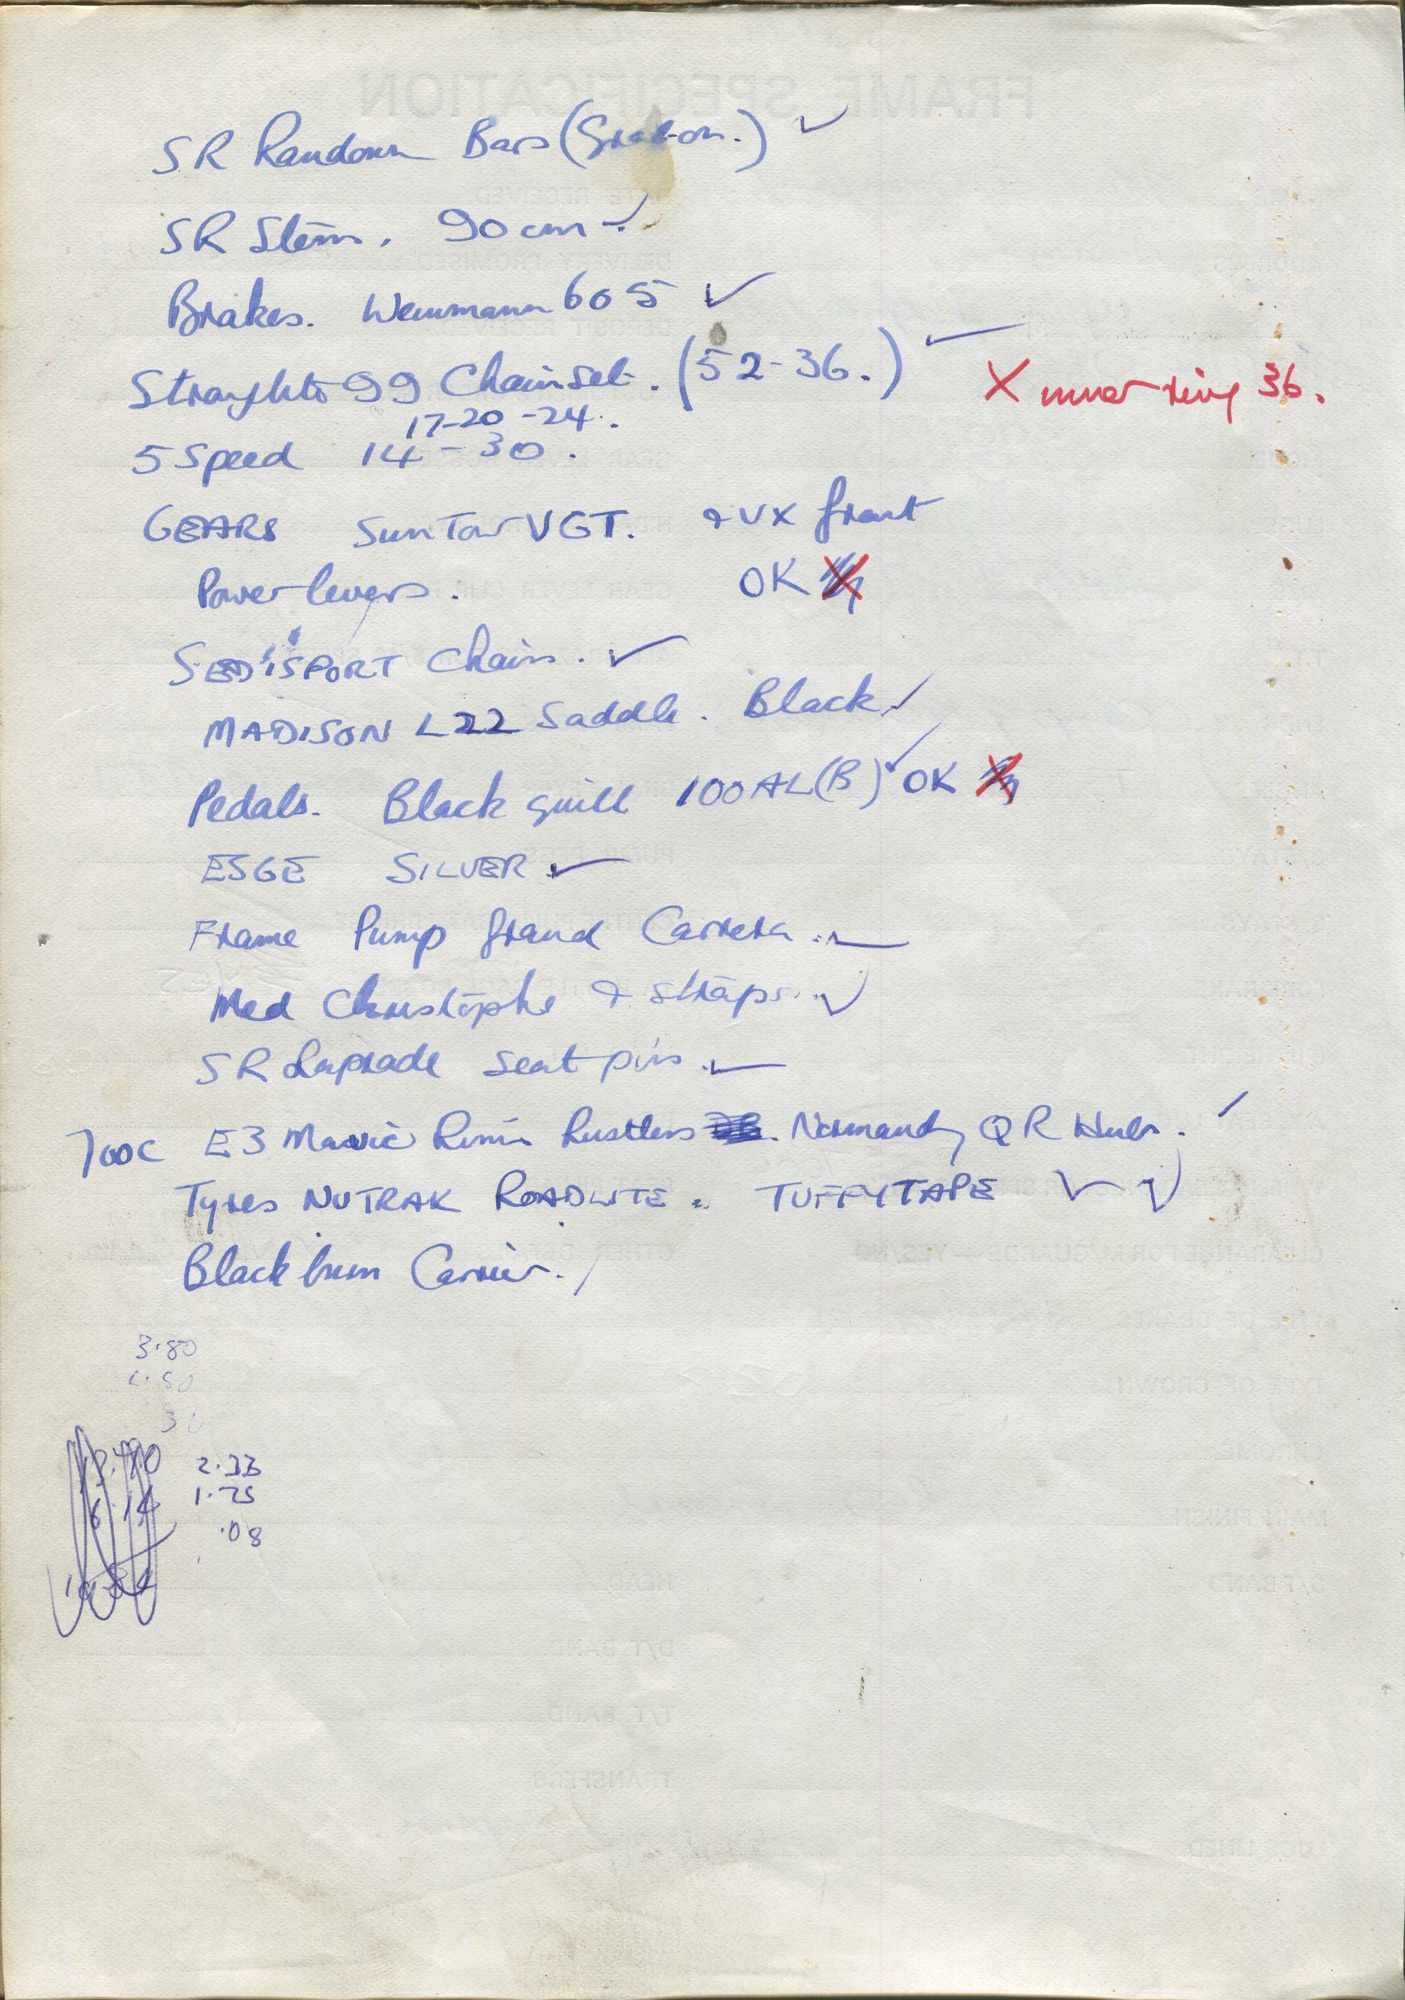 SR Randonn Bars ( ) ✓
SR Stem. 90cm ✓
Brakes. Weinmann 605 ✓
99 Chainset. (52-36.) ✓ X inner ring 36.
17-20-24.
5 Speed 14-30.
GEARS SunTour VGT. & VX front
Power levers. OK
SEDISPORT Chain. ✓
MADISON L22 Saddle. Black ✓
Pedals. Black quill 100AL(B) ✓ OK
ESGE SILVER ✓
Frame Pump Grand Carrera. ✓
Med Christophe & straps. ✓
SR Laprade Seat pin. ✓
700C E3 Mavic Rims Rustless Normandy QR Hubs. ✓
Tyres NUTRAK ROADLITE. TUFFYTAPE ✓ ✓
Blackburn Carrier. /
3.80
2.33
1.75
.08